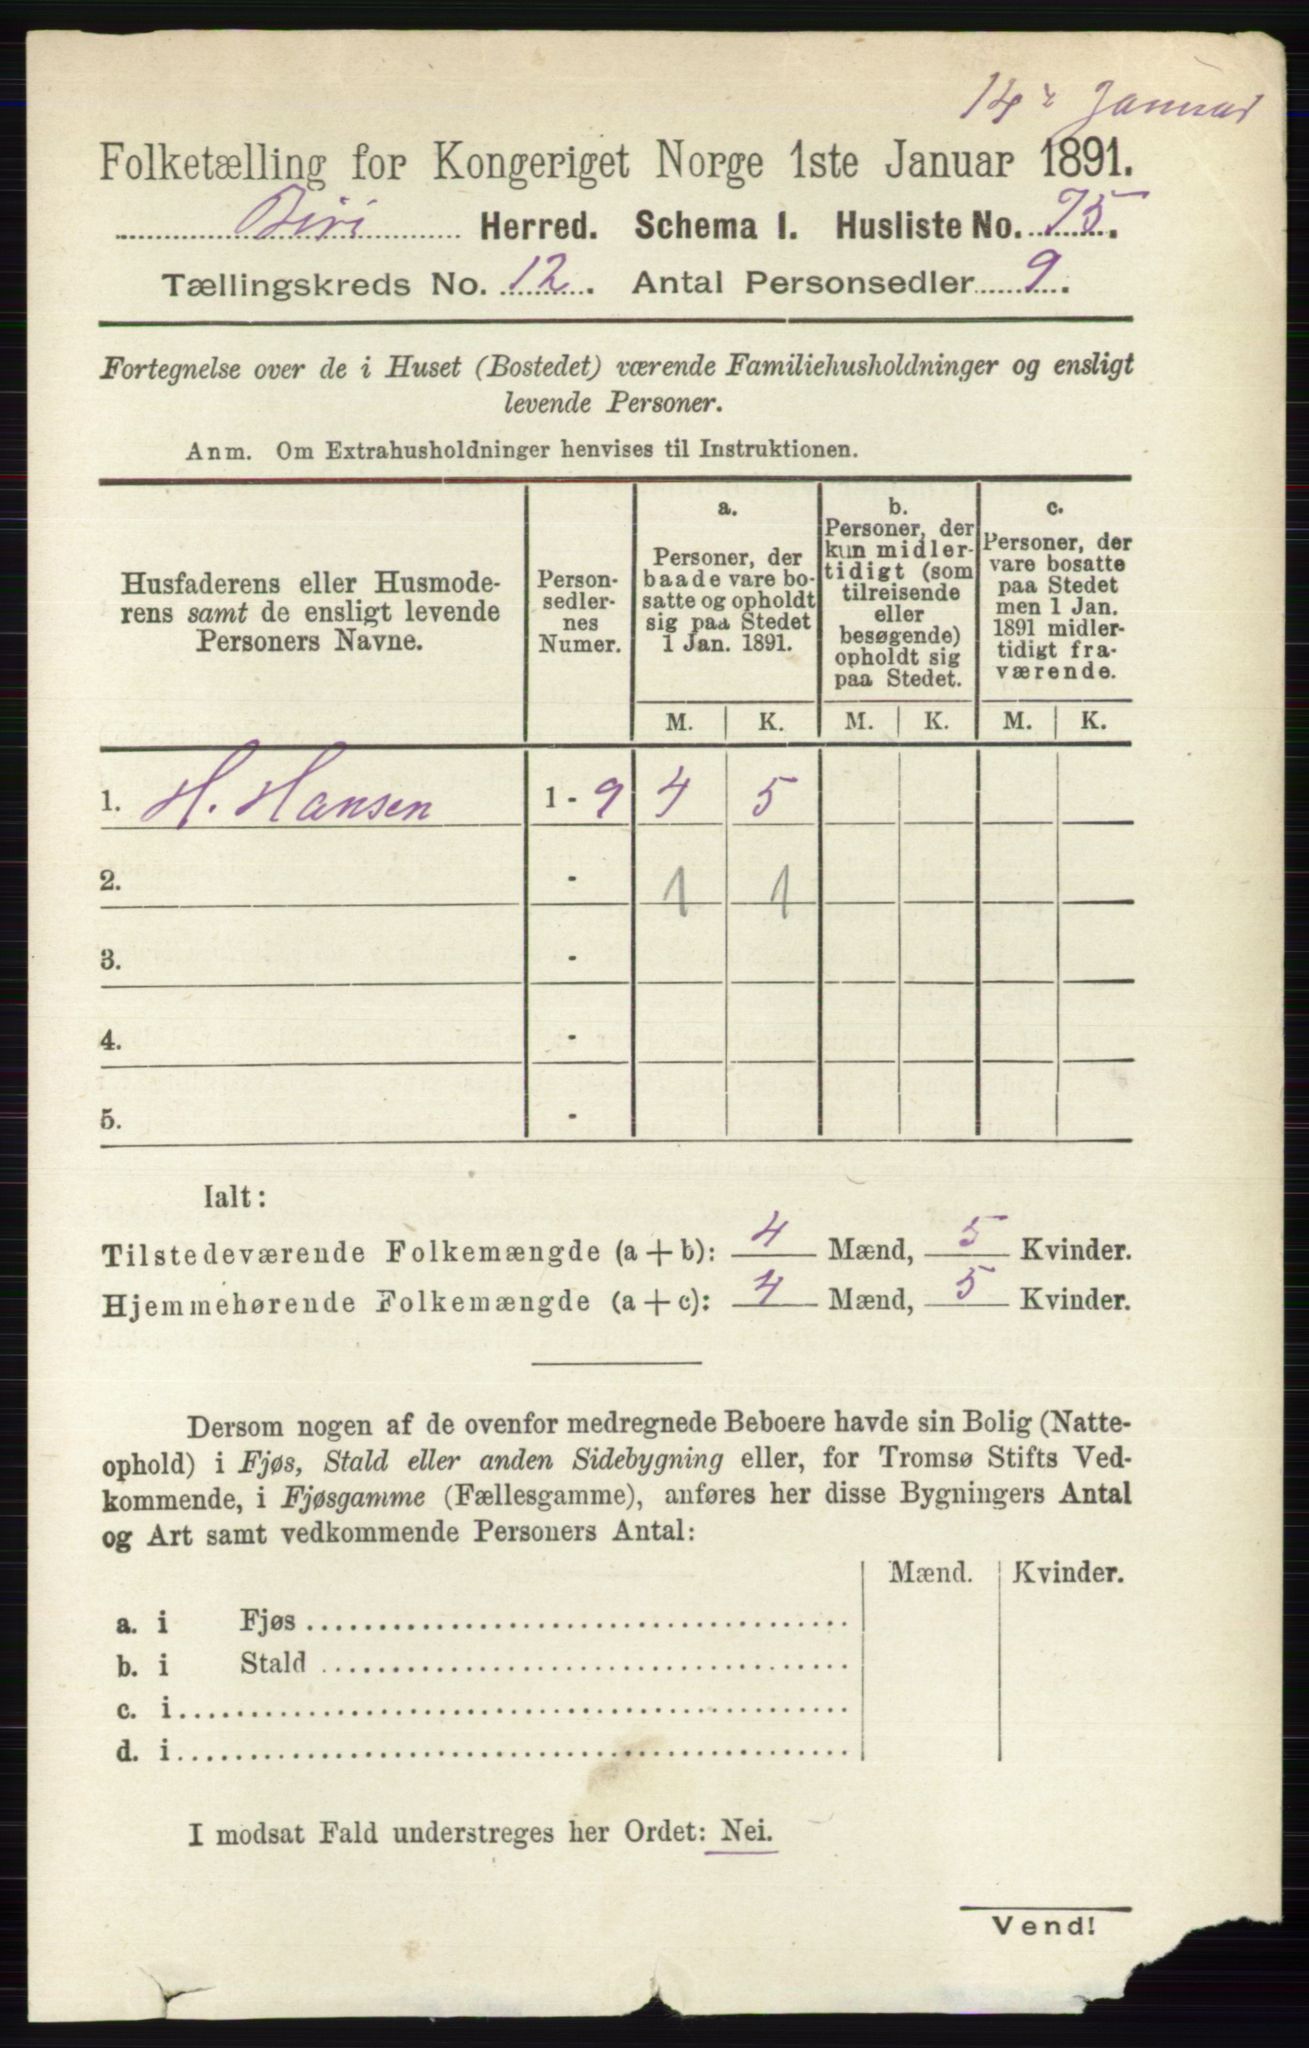 14de Januar
Folketælling for Kongeriget Norge 1ste Januar 1891.
Biri Herred. Schema 1. Husliste No. 75.
Tællingskreds No. 12. Antal Personsedler 9.
Fortegnelse over de i Huset (Bostedet) værende Familiehusholdninger og ensligt
levende Personer.
Anm. Om Extrahusholdninger henvises til Instruktionen.
Husfaderens eller Husmode-
rens samt de ensligt levende
Personers Navne.
Person-
sedler-
nes
Numer.
a.
Personer, der
baade vare bo-
satte og opholdt
sig paa Stedet
1 Jan. 1891.
b.
Personer, der
kun midler-
tidigt (som
tilreisende
eller
besøgende)
opholdt sig
paa Stedet.
c.
Personer, der
vare bosatte
paa Stedet
men 1 Jan.
1891 midler-
tidigt fra-
værende.
M. K. M. K. M. K.
1. H. Hansen 1 - 9 4 5
2. - 1 1
3. -
4. -
5. -
Ialt:
Tilstedeværende Folkemængde (a + b): 4 Mænd, 5 Kvinder.
Hjemmehørende Folkemængde (a + c): 4 Mænd, 5 Kvinder.
Dersom nogen af de ovenfor medregnede Beboere havde sin Bolig (Natte-
ophold) i Fjøs, Stald eller anden Sidebygning eller, for Tromsø Stifts Ved-
kommende, i Fjøsgamme (Fællesgamme), anføres her disse Bygningers Antal
og Art samt vedkommende Personers Antal:
Mænd. Kvinder.
a. i Fjøs
b. i Stald
c. i
d. i
I modsat Fald understreges her Ordet: Nei.
Vend!